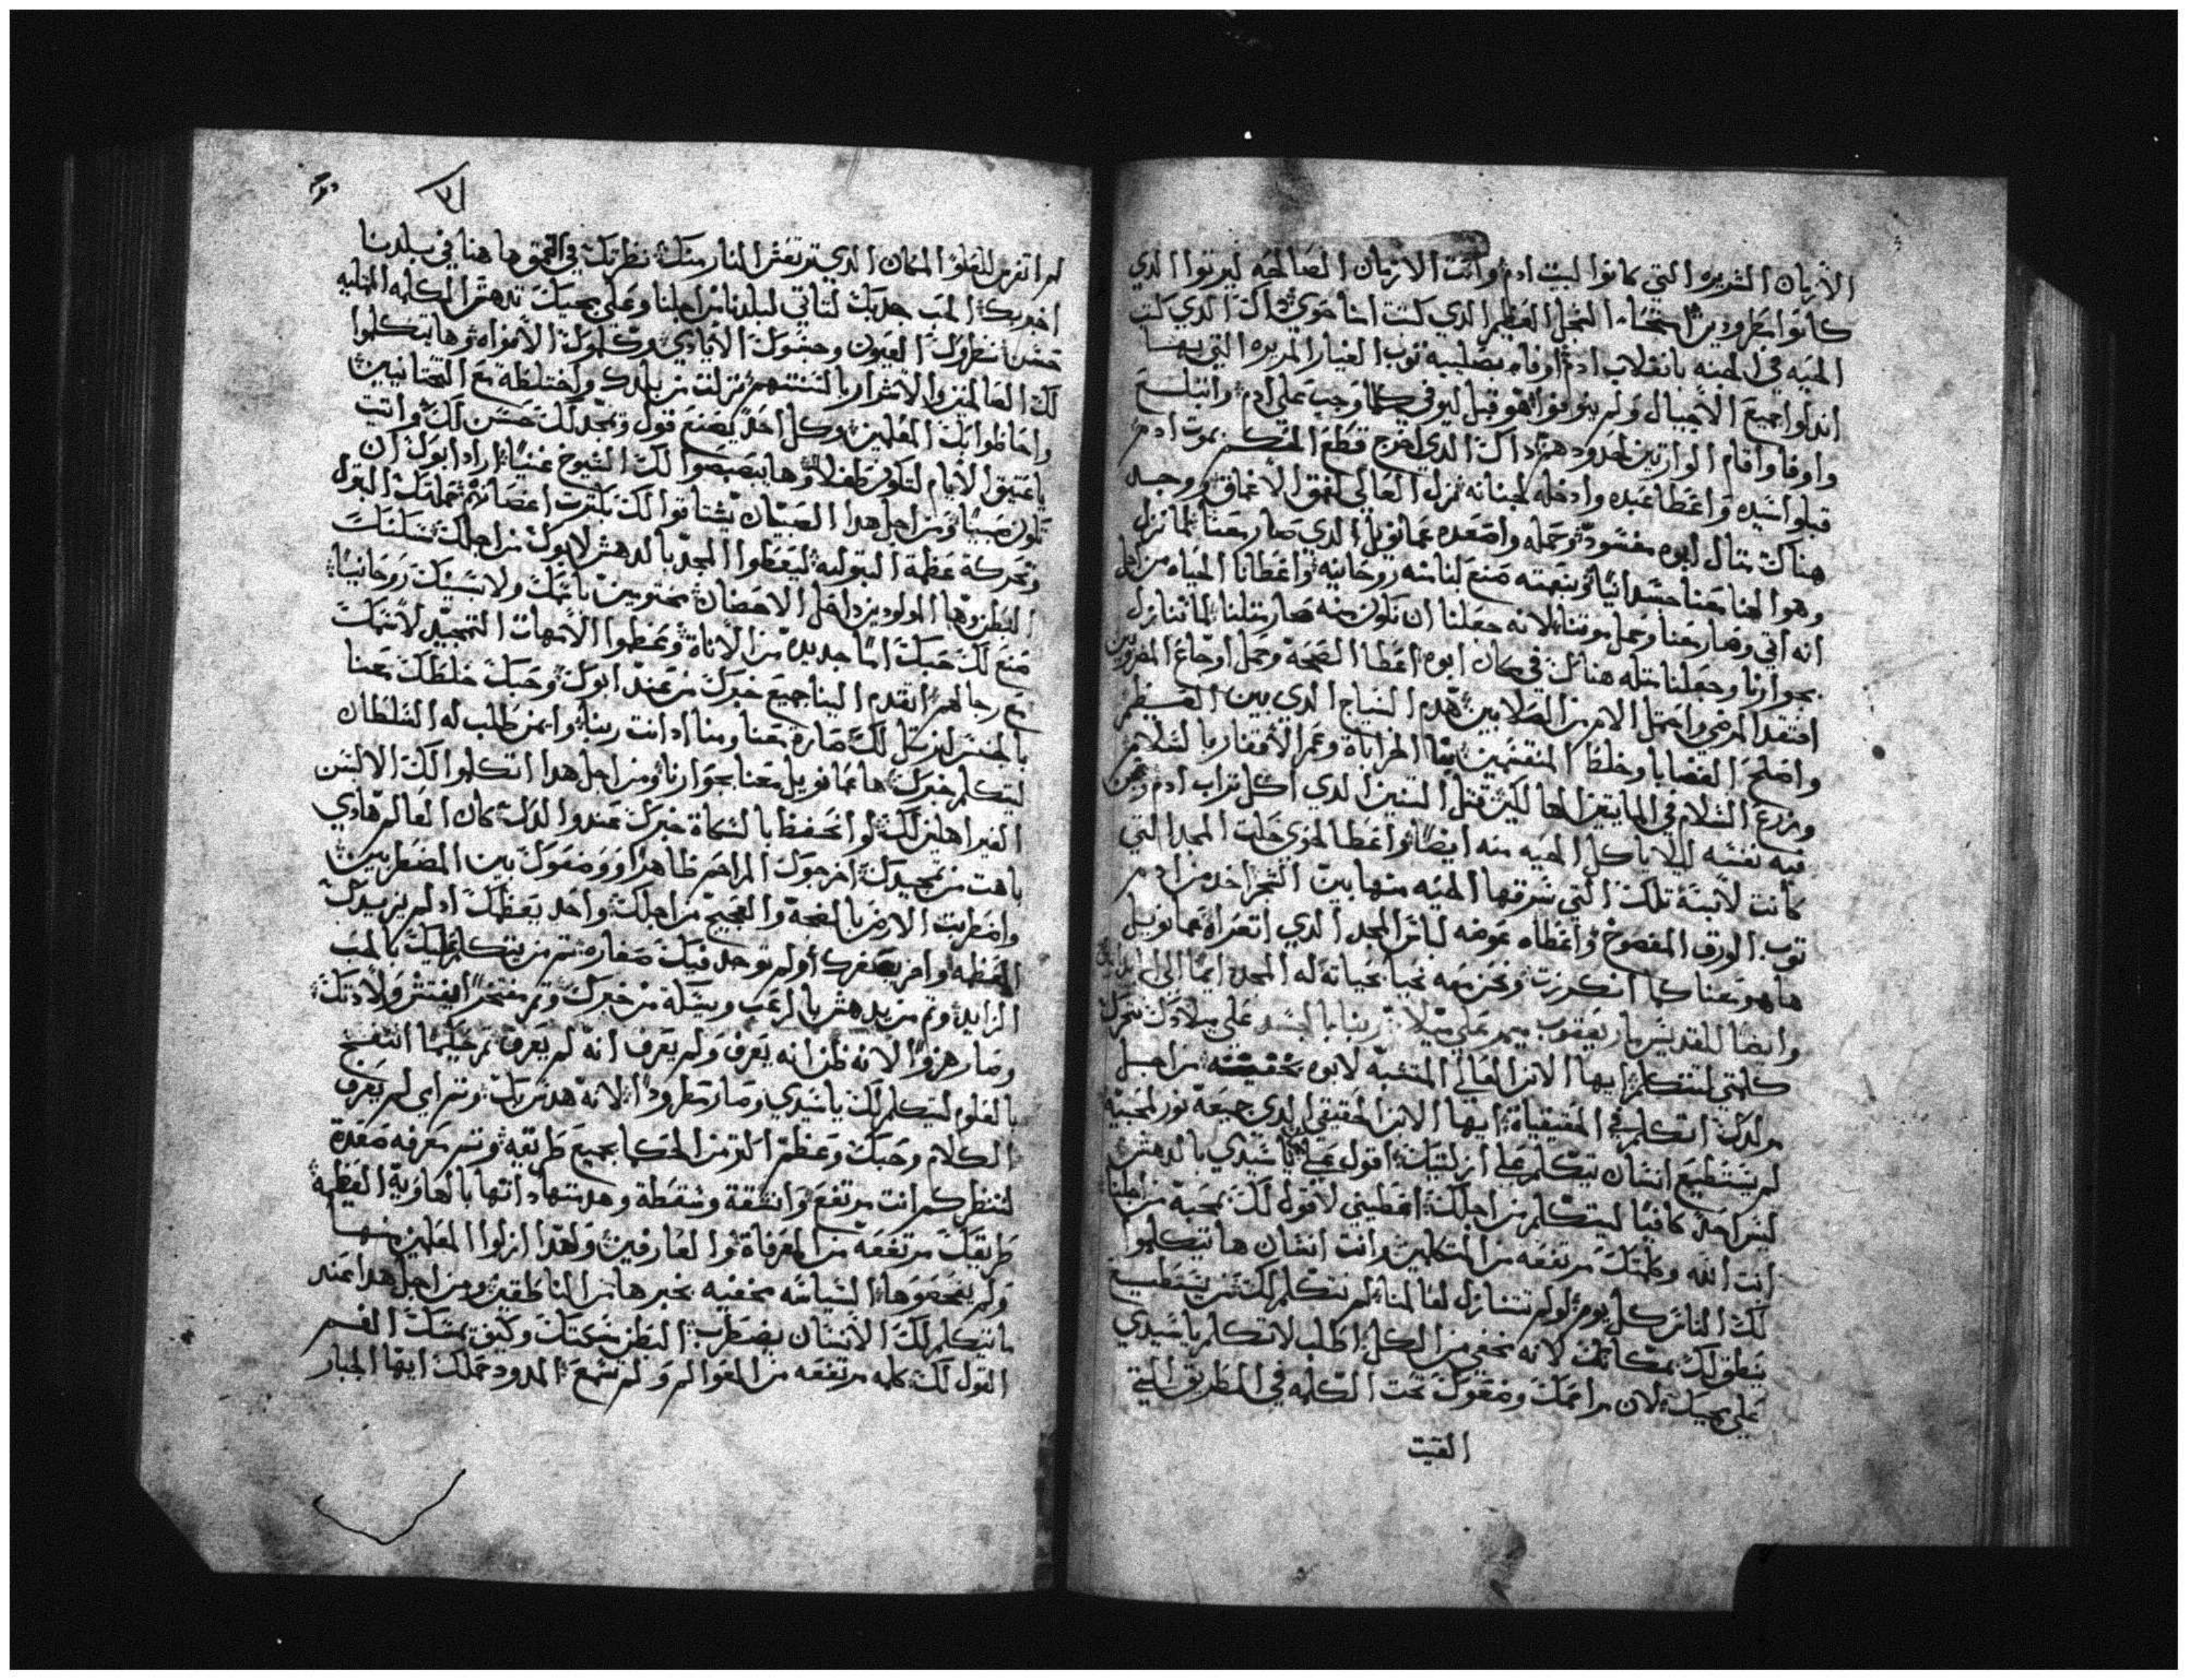 الأزيان الشريره التي كانوا لبيت ادم واتت الازيان الصالحه ليرتوا الدي
كانوا مطرودين استحياء النجل العظيم الدي كتب اثنا حوي داك الدي كتب
الحيه في الجنه بانقلاب ادم اوفاه بصلبيه توب العيار المريره التي بها
اندلوا جميع الاجيال ولم يوفوا هو قبل ليوفي كلما وجب علي ادم وابتلع
واوفا واقام الوارتين لحدودهم داك الدي اخرج قطع الحكم بموت ادم
قبلوا سيده واعطا عبده وادخله لجنانه نزل العالي لعمق الاعماق ووجد
هناك متال ابوه مفسود وحمله واصعده عمانويل الدي صار معنا لما نزل
وهو الهنا معنا جسدانيا وبنعمته صنع لنا منه روحانيه واعطانا الحياه من اجل
انه اتي وصار معنا وحمل موتنا لانه جعلنا ان نكون منه صار متلنا لما تنازل
بجوارنا وجعلنا متله هناك في مكان ابوه اعطا الصحه وحمل اوجاع المضرورين
افتقد المرضي واحتمل الامر من الصلابين هدم السياج الدي بين القسطم
واصلح الغضابا وخلط المنقسمين بنا الخراباة وعمر الاقفار بالسلام
وزرع السلام في المايتين لها لكن قتل التنين الدي اكل تراب ادم وكمن
فيه نفسه ليلا ياكل الحيه منه ايضا واعطا لحوي حلت المجد التي
كانت لابنة تلك التي سرقها الحيه منها بين الشجر اخد من ادم
توب الورق المفضوح واعطاه عوضه لباس المجد الدي اتعراه عمانويل
ها هو معنا كما انكرزت ونحن معه نحيا بحياته له المجد ايضا الي
وايضا للقديس مار يعقوب ميمر علي ميلاد ربنا بالجسد علي ميلادك تتحرك
كلمتي لتتكلم ايها الابن العالي المتشبه لابوه بحقيقته من اجل
مولدك اتكلم في الحقيقياة ايها الابن الحقيقي الدي جميعه نور لمحبيه
لم يستطيع انسان يتكلم علي ازليتك اقول علي يا سيدي بالدهش
ليس احد كافيا ليتكلم من اجلك اعطيني لاقول لك بمحبه من اجلنا
انت الله وكلمتك مرتفعه من المتكلمين وانت انسان ها تيكلموا
لك الناس كل يوم لو لم تتنازل لعالمنا لم نتكلم لك من يستطيع
ينطق لك بمكانك لانه مخفي من الكل اطلب لاتكلم يا سيدي
علي مجيك لان مراحمك وضعوك تحت الكلمه في الطريق التي
القيت
لم اتفرس للعلو المكان الدي ترتعش النار منك نظرتك في العمق ها هنا في بلدنا
اخبريك الحب جدبك لتاتي لبلدنا من اجلنا وعلي مجيك تدهش الكلمه المتليه
حسن نظروك العيون وجسوك الايادي وكلموك الافواه وها يتكلموا
لك العالمين والاشرار بالسنتهم نزلت من بلدك واختلطة مع التحتانيين
واحاطوا بك المعلمين وكل احد يصنع قول وتمجد لك حسن لك واتيت
يا عتيق الايام لتكون طفلا وها يبصبصوا لك الشيوخ عنيا اراد ابوك ان
تكون صبيا ومن اجل هدا الصبيان يشتاقوا لك تكترت اعضائهم حملتك البتول
وتحركة عظمة البتوليه ليعطوا المجد بالدهش لابوك من اجلك سكنت
البطن وها المولودين داخل الاحضان مختومين باسمك ولا سببك روحانيا
صنع لك حبك اما جديده من الاناة وعظموا الامهات التمجيد لاسمك
مع رجالهم اتقدم الينا جميع خبرك من عند ابوك وحبك خلطك معنا
بالجنس ليرسل لك صارة معنا ومنا اد انت ربنا وايمن طلب له السلطان
ليتكلم خبرك ها عمانويل معنا بجوارنا ومن اجل هدا اتكلموا لك الالسن
الغير اهلين لك لو انحفظ بالسكاة خبرك عند والدك كان العالم هادي
باهت من تمجيدك اخرجوك المراحم ظاهرا ووضعوك بين المضطربين
واضطربت الارض بالضجة والعجيج من اجلك واحد يعظمك اد لم يزيدك
العظمه واخر يصغرك اد لم توجد فيك صغاره تم من يتكلم عليك بالحب
الزايد وتم من يدهش بالرعب ويسكة من خبرك وتم مفتخر اليفتش ولادتك
وصار هزوا لانه ظن انه يعرف ولم يعرف انه لم يعرف تم حكيما انتفخ
بالعلوم ليتكلم لك يا سيدي وصار مطرودا لانه هدس بك وتم راي لم يعرف
الكلام وحبك وعظم اكتر من الحكما بجميع طرايقه وتم معرفه صعدة
لتنظر كم انت مرتفع وانشقة وسقطة وهدستها داتها بالهاوية العظيمة
طريقك مرتفعه من المعرفاة والعارفين ولهدا ازلوا المعلمين منها
ولم يفحصوها السياسه مخفيه بخبرها من الناطقين ومن اجل هدا عند
ما تيكلم لك الانسان يضطرب البطن سكنك وكيف يمسك الفم
القول لك كلمه مرتفعه من العوالم ولم تسع المدود حملك ايها الجبار